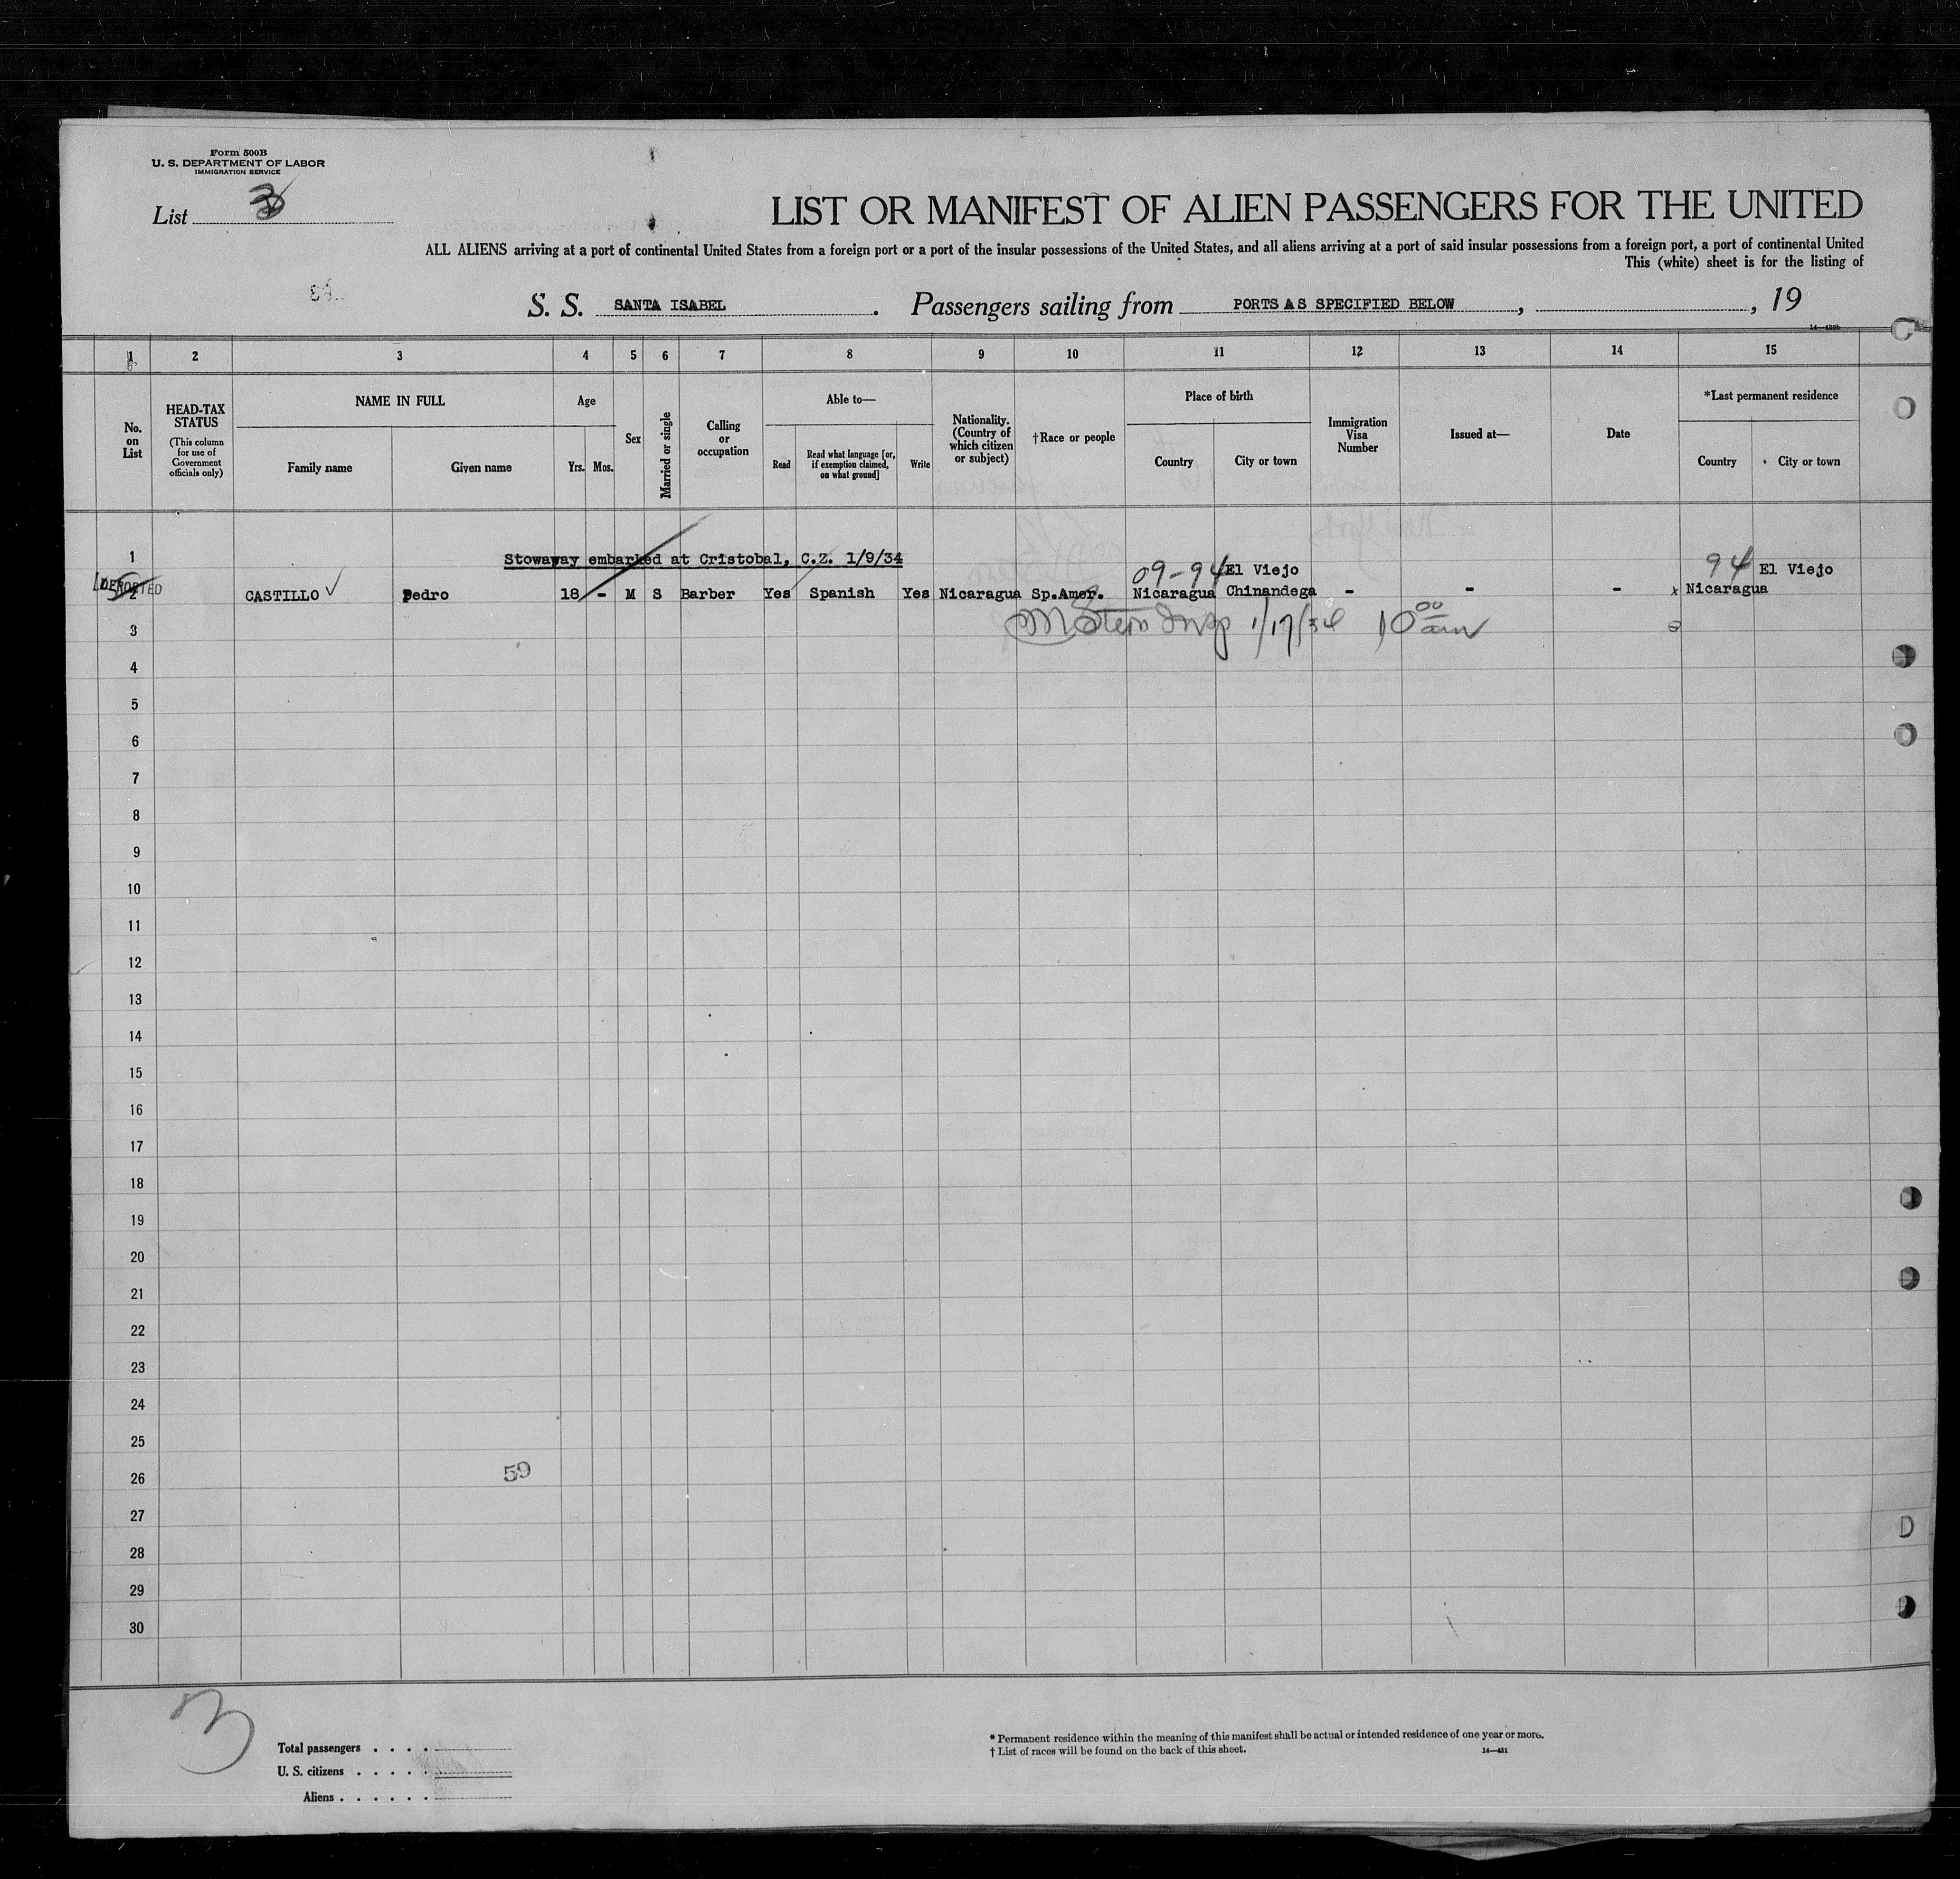 Form 500B
U. S. DEPARTMENT OF LABOR
IMMIGRATION SERVICE
List 3
LIST OR MANIFEST OF ALIEN PASSENGERS FOR THE UNITED
ALL ALIENS arriving at a port of continental United States from a foreign port or a port of the insular possessions of the United States, and all aliens arriving at a port of said insular possessions from a foreign port, a port of continental United
This (white) sheet is for the listing of
S. S. SANTA ISABEL . Passengers sailing from PORTS AS SPECIFIED BELOW , , 19
14—430b
1 2 3 4 5 6 7 8 9 10 11 12 13 14 15
No. on List
HEAD-TAX STATUS
(This column for use of Government officials only)
NAME IN FULL
Family name
Given name
Age
Yrs. Mos.
Sex
Married or single
Calling or occupation
Able to—
Read
Read what language [or, if exemption claimed, on what ground]
Write
Nationality. (Country of which citizen or subject)
†Race or people
Place of birth
Country
City or town
Immigration Visa Number
Issued at—
Date
*Last permanent residence
Country
City or town
1 Stowaway embarked at Cristobal, C.Z. 1/9/34
09-94 El Viejo 94 El Viejo
DEPORTED 2 CASTILLO ✓ Pedro 18 - M S Barber Yes Spanish Yes Nicaragua Sp.Amer. Nicaragua Chinandega - - - x Nicaragua
3 M Stern Insp 1/17/34 10 00 am
4
5
6
7
8
9
10
11
12
13
14
15
16
17
18
19
20
21
22
23
24
25
26 59
27
28
29
30
3
Total passengers . . . .
U. S. citizens . . . . .
Aliens . . . . . .
* Permanent residence within the meaning of this manifest shall be actual or intended residence of one year or more.
† List of races will be found on the back of this sheet.
14—431